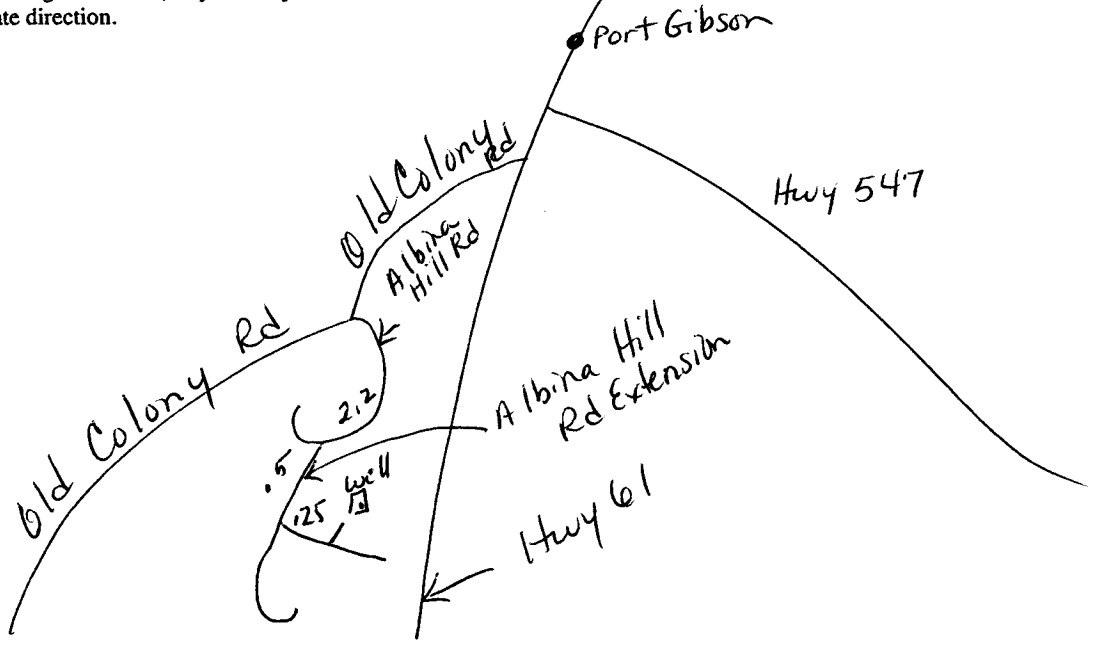 ate direction.
Port Gibson
Old Colony
Rd
Hwy 547
Albina
Hill Rd
Old Colony Rd
2.2
Albina Hill
Rd Extension
.5
well
.25
Hwy 61